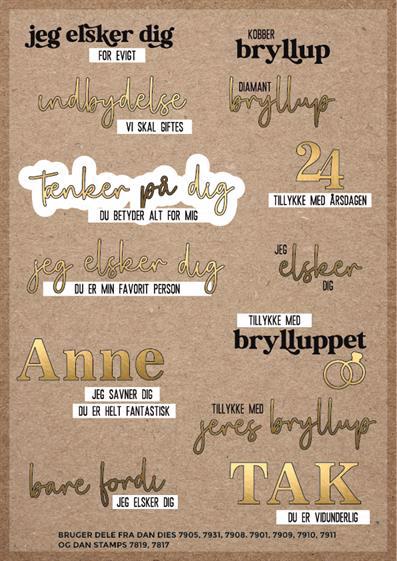 jeg elsker dig
FOR EVIGT
KOBBER
bryllup
indbydelse
VI SKAL GIFTES
DIAMANT
bryllup
Tænker på dig
DU BETYDER ALT FOR MIG
24
TILLYKKE MED ÅRSDAGEN
jeg elsker dig
DU ER MIN FAVORIT PERSON
JEG
elsker
DIG
TILLYKKE MED
brylluppet
Anne
JEG SAVNER DIG
DU ER HELT FANTASTISK
TILLYKKE MED
jeres bryllup
bare fordi
JEG ELSKER DIG
TAK
DU ER VIDUNDERLIG
BRUGER DELE FRA DAN DIES 7905, 7931, 7908, 7901, 7909, 7910, 7911
OG DAN STAMPS 7819, 7817